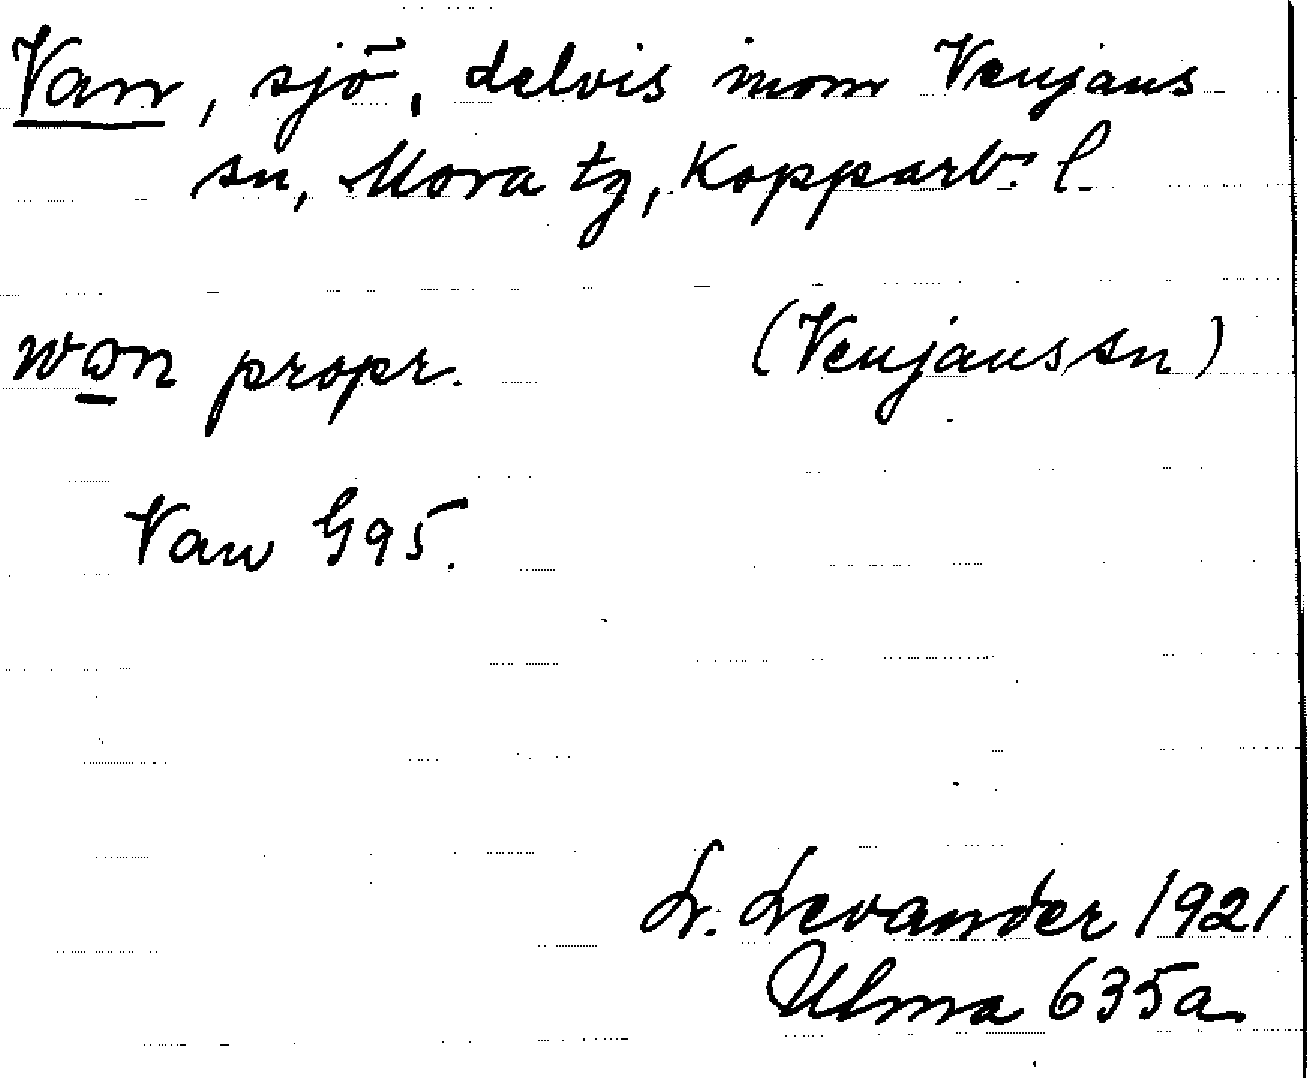 Van, sjö, delvis inom Venjans
sn, Mora tg, Kopparb:s l.
wan propr. (Venjans sn)
Van G95.
L. Levander 1921
Ulma 635a.